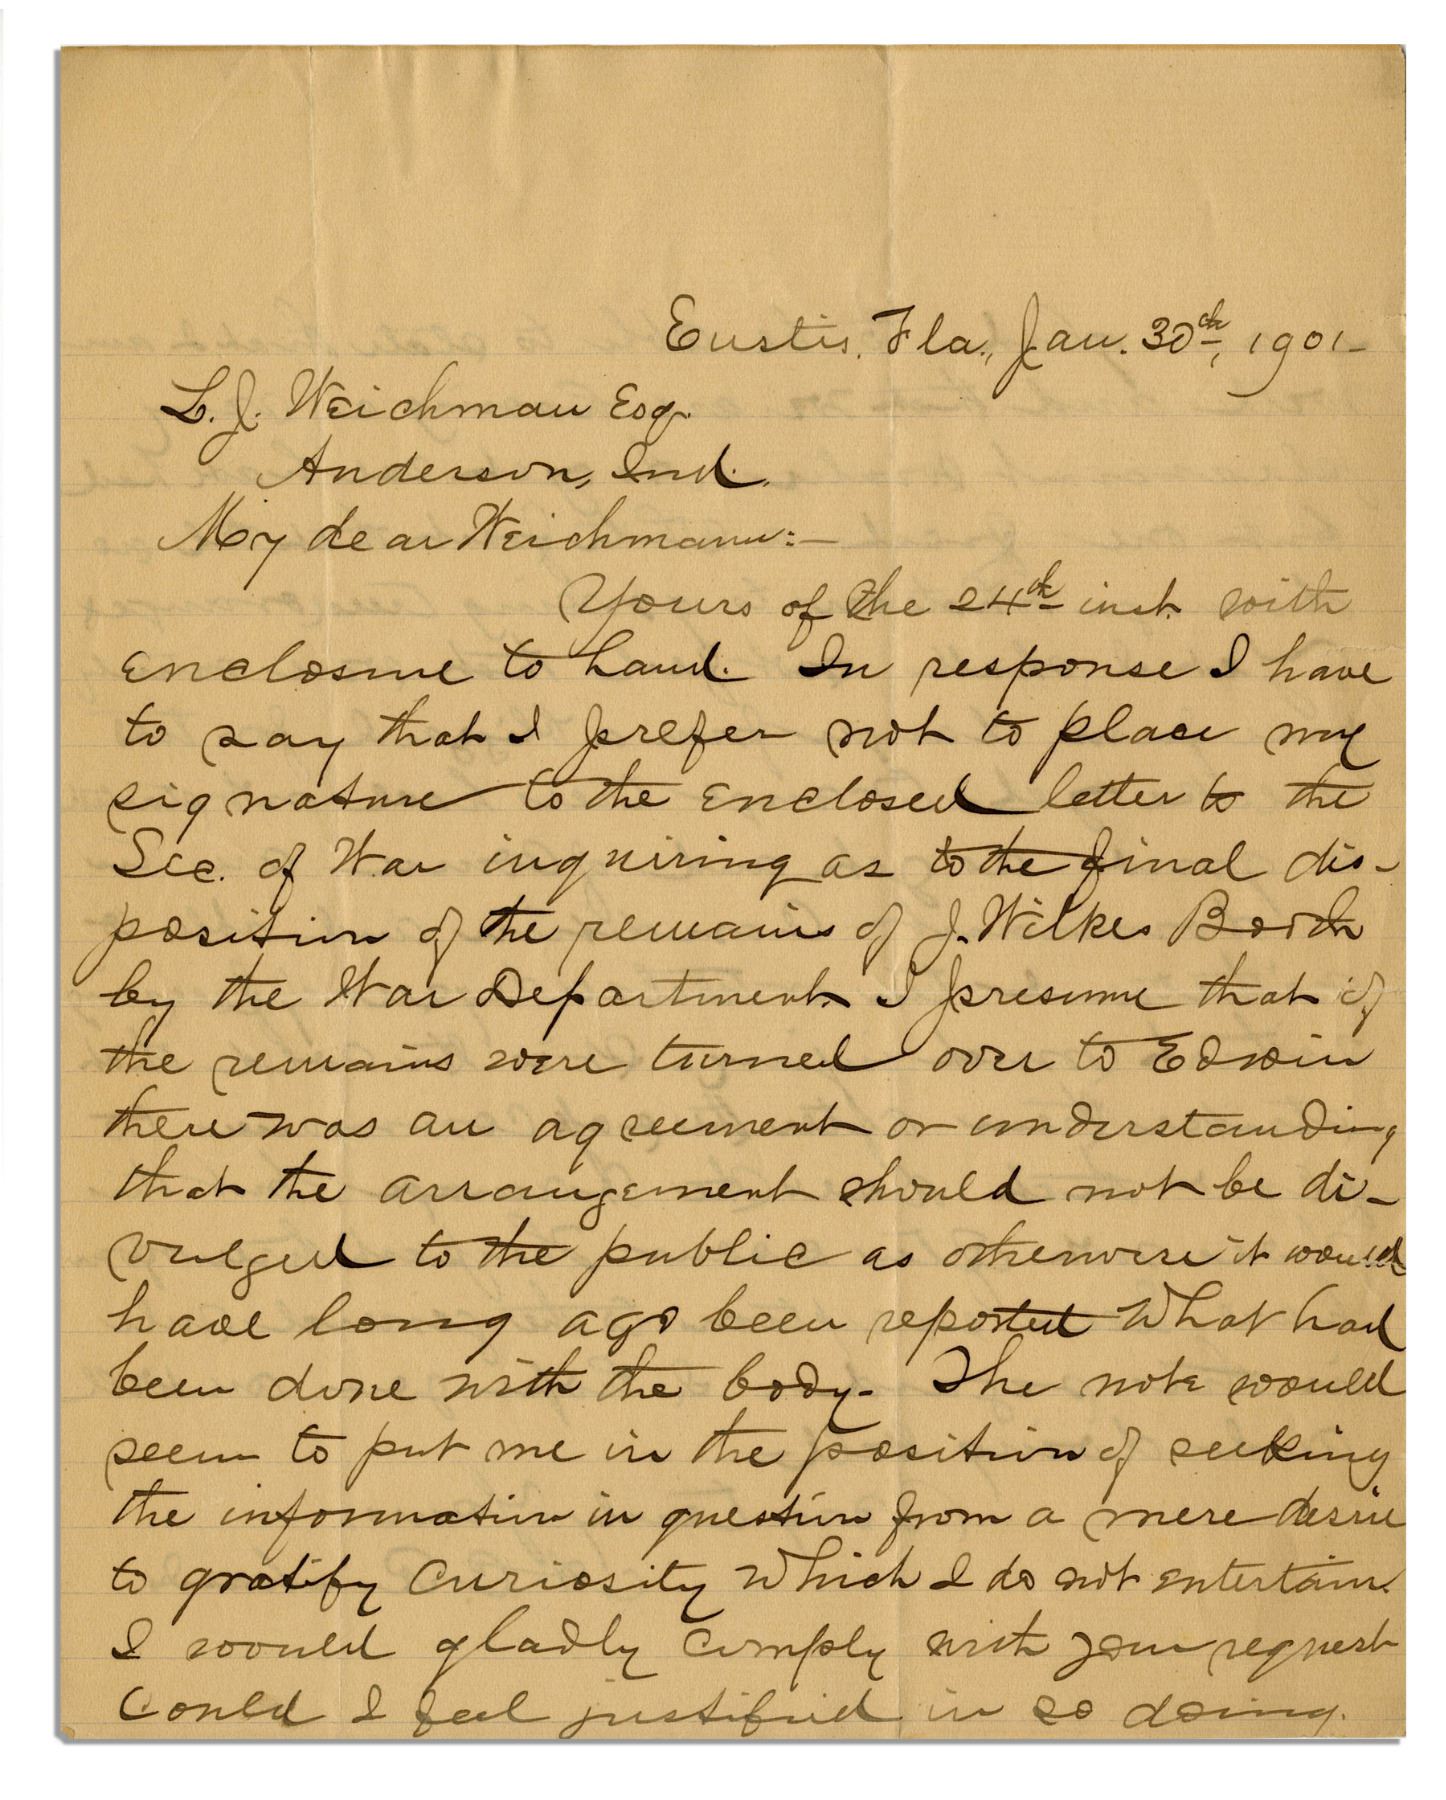 Eustis, Fla., Jan. 30th, 1901-
L. J. Weichman Esq.
Anderson, Ind.
My dear Weichmann:-
Yours of the 24th inst. with
enclosure to hand. In response I have
to say that I prefer not to place my
signature to the enclosed letter to the
Sec. of War inquiring as to the final dis-
position of the remains of J. Wilkes Booth
by the War Department. I presume that if
the remains were turned over to Edwin
there was an agreement or understanding
that the arrangement should not be di-
vulged to the public as otherwise it would
have long ago been reported what had
been done with the body. The note would
seem to put me in the position of seeking
the information in question from a mere desire
to gratify curiosity which I do not entertain.
I would gladly comply with your request
could I feel justified in so doing.